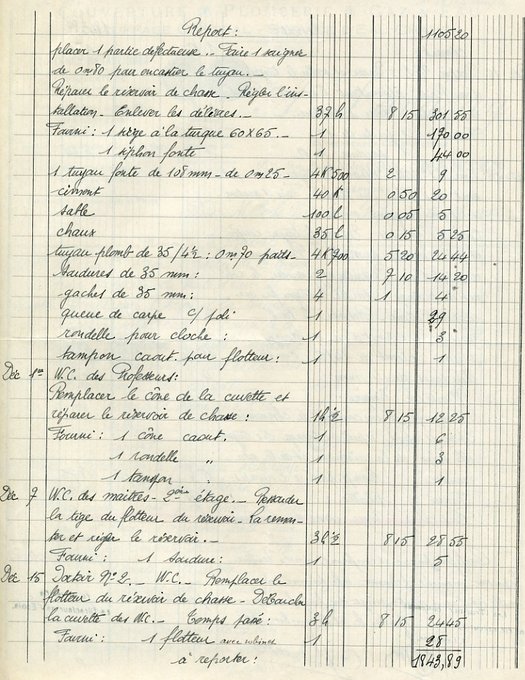 Report : 1105 20
placer 1 partie défectueuse. - Faire 1 saigner
de 0m80 pour encastrer le tuyau. -
Réparer le réservoir de chasse. Régler l'ins-
tallation. Enlever les débris. - 37 h 8 15 301 55
Fourni : 1 siège à la turque 60X65. - 1 170 00
1 siphon fonte 1 44 00
1 tuyau fonte de 108 mm - de 0m25 - 4K500 2 9
ciment 40 K 0 50 20
sable 100 l 0 05 5
chaux 35 l 0 15 5 25
tuyau plomb de 35/42 : 0m70 poids - 4K700 5 20 24 44
soudures de 35 mm : 2 7 10 14 20
gaches de 35 mm : 4 1 4
queue de carpe c/ poli 1 29
rondelle pour cloche : 1 3
tampon caout. pour flotteur : 1 1
Déc 1er W.C. des Professeurs :
Remplacer le cône de la cuvette et
réparer le réservoir de chasse : 1h½ 8 15 12 25
Fourni : 1 cône caout. 1 6
1 rondelle " 1 3
1 tampon " 1 1
Déc 7 W.C. des maîtres - 2ème étage. - Ressouder
la tige du flotteur du réservoir - La remon-
ter et régler le réservoir. - 3h½ 8 15 28 55
Fourni : 1 soudure : 1 5
Déc 15 Dortoir N° 2. - W.C. - Remplacer le
flotteur du réservoir de chasse - Déboucher
la cuvette des W.C. - Temps passé : 3h 8 15 24 45
Fourni : 1 flotteur avec 1 28
à reporter : 1843,89